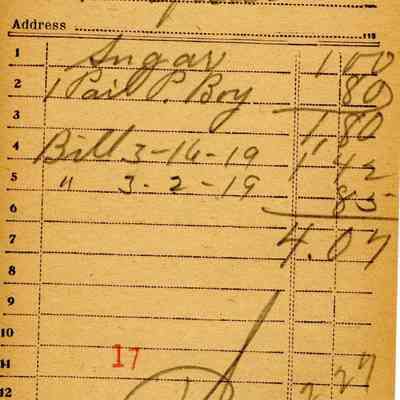 Address
1 Sugar 1 00
2 1 Pail P. Boy 80
3 1,80
4 Bill 3-16-19 1 42
5 " 3-2-19 85
6
7 4.07
8
9
10
11 17
12 2 27